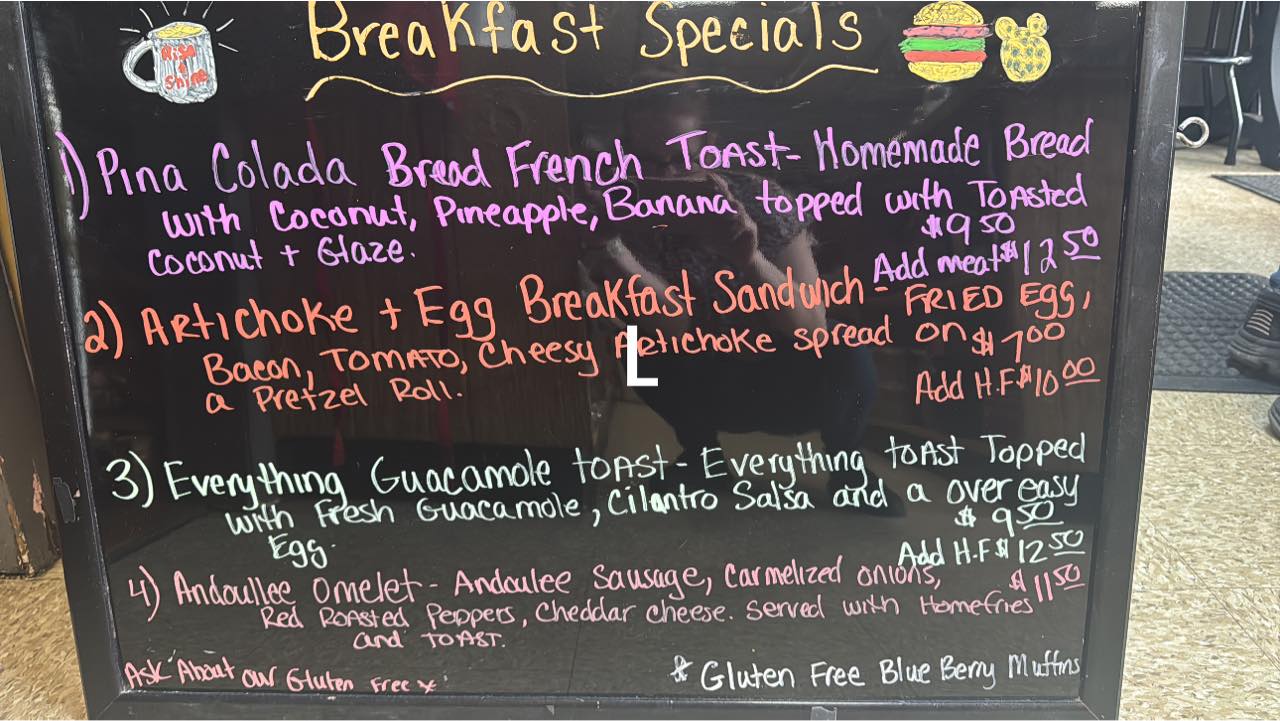 Rise
&
Shine
Breakfast Specials
1) Pina Colada Bread French Toast- Homemade Bread
with Coconut, Pineapple, Banana topped with Toasted
Coconut + Glaze.
$9 50
Add meat $12 50
2) Artichoke + Egg Breakfast Sandwich - Fried Egg,
Bacon, Tomato, Cheesy Artichoke spread on
a Pretzel Roll.
$7 00
Add H.F $10 00
L
3) Everything Guacamole Toast - Everything toast Topped
with Fresh Guacamole, Cilantro Salsa and a over easy
Egg.
$ 9 50
Add H.F $12 50
4) Andoullee Omelet - Andoulee Sausage, Carmelized onions,
Red Roasted Peppers, Cheddar cheese. Served with Homefries
and Toast.
$11 50
Ask About our Gluten Free *
* Gluten Free Blue Berry Muffins